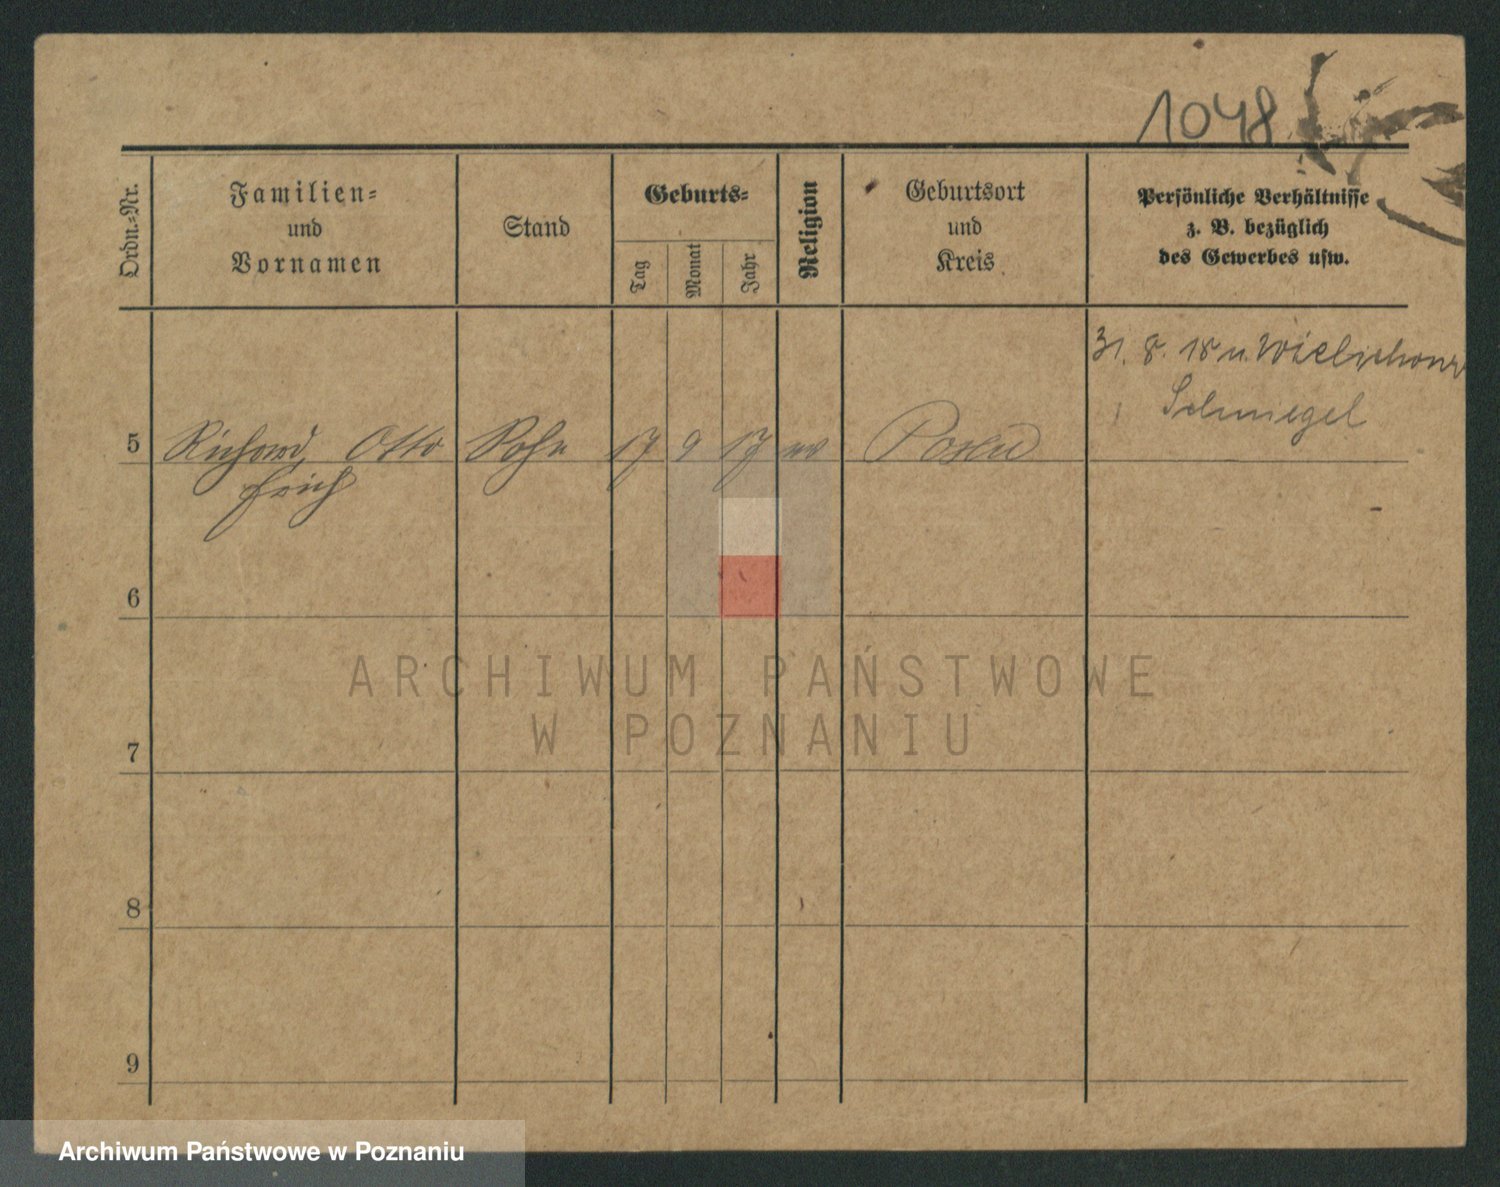 1048
Ordn.=Nr.
Familien=
und
Vornamen
Stand
Geburts=
Tag
Monat
Jahr
Religion
Geburtsort
und
Kreis
Persönliche Verhältnisse
z. B. bezüglich
des Gewerbes usw.
31. 8. 18 n.
Schmiegel
5 Richard, Otto Sohn 17 9 17 ev Posen
Erich
6
7
8
9
ARCHIWUM PAŃSTWOWE
W POZNANIU
Archiwum Państwowe w Poznaniu